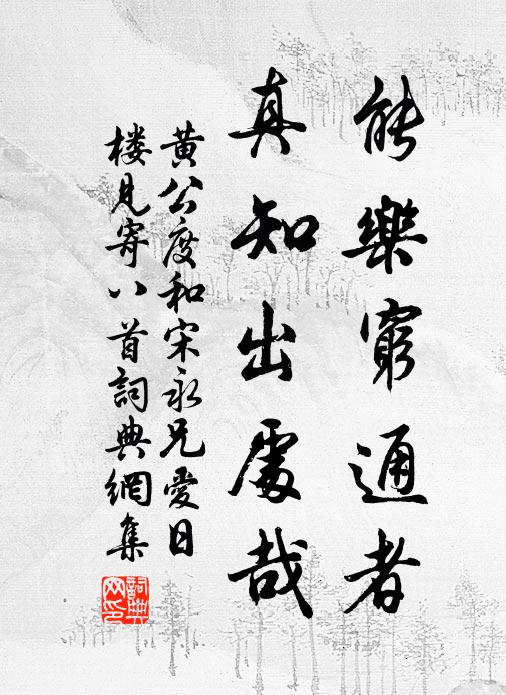 能樂窮通者
真知出處哉
黃公度和宋永兄愛日
楼見寄八首詞典網集